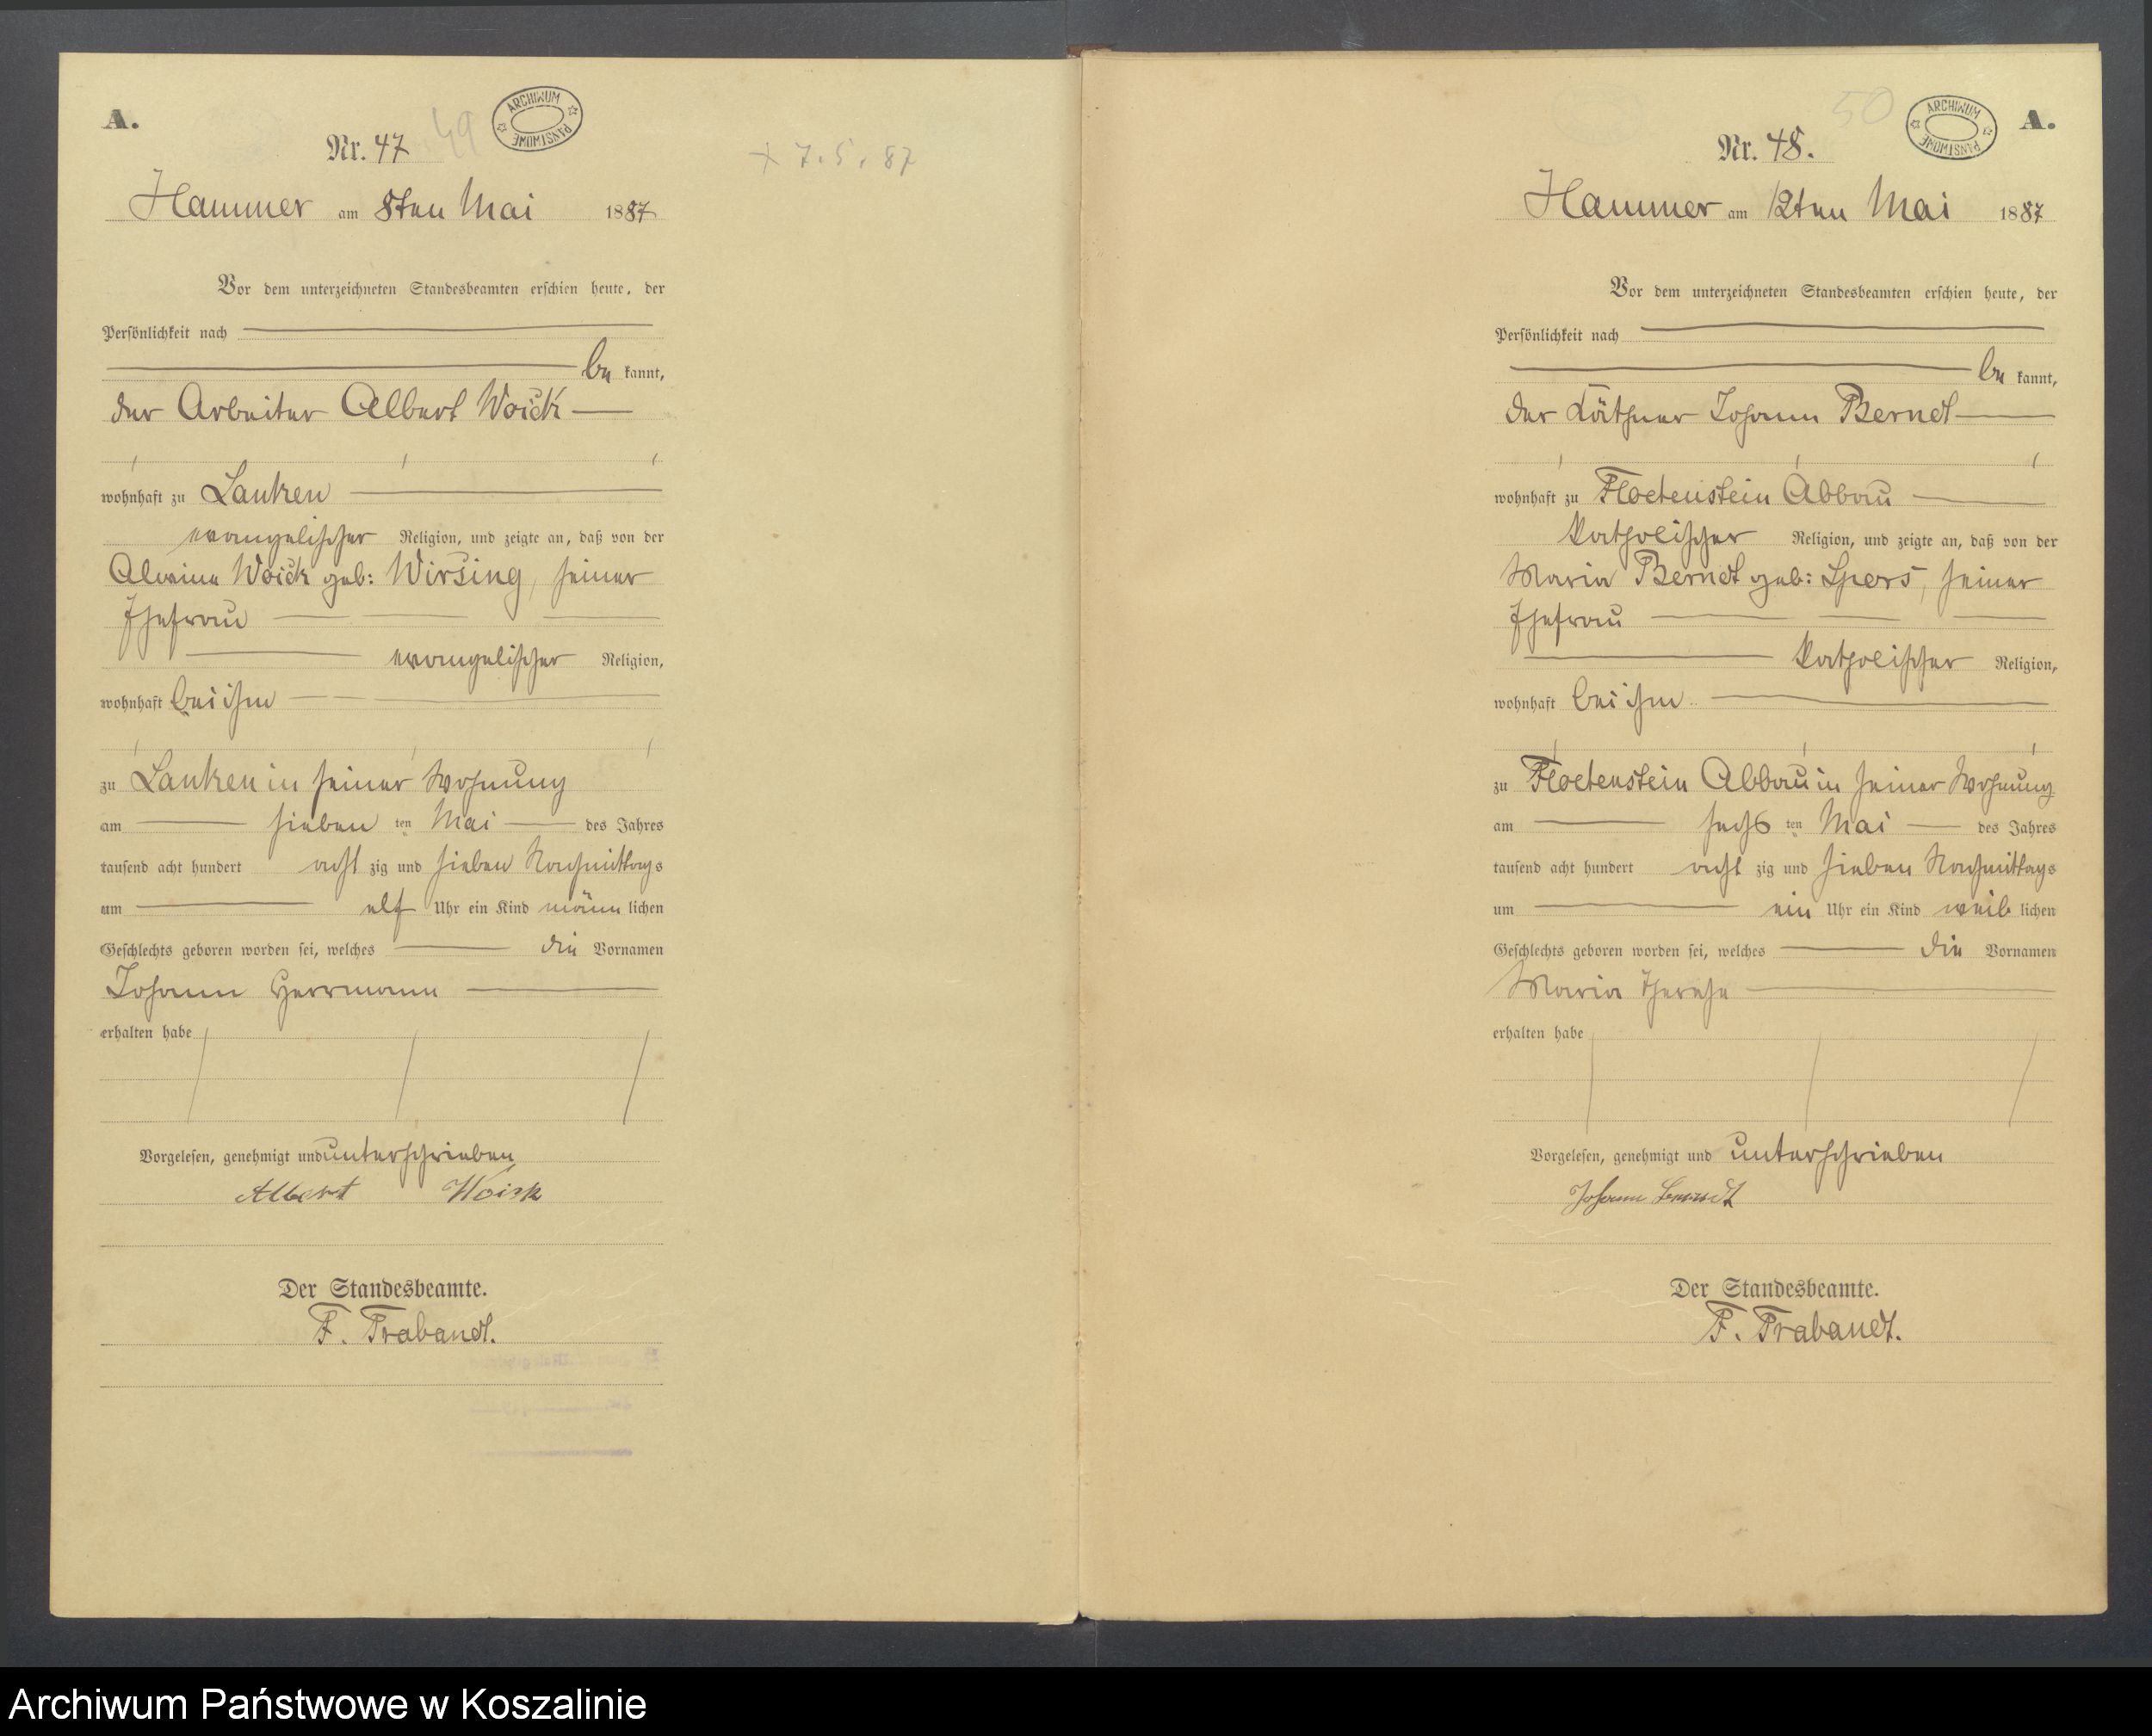 A.
ARCHIWUM PAŃSTWOWE
Nr. 47 49
Hammer am 8ten Mai 1887
Vor dem unterzeichneten Standesbeamten erschien heute, der
Persönlichkeit nach
be kannt,
der Arbeiter Albert Woick
wohnhaft zu Lanken
evangelischer Religion, und zeigte an, daß von der
Alwine Woick geb: Wirsing, seiner
Ehefrau
evangelischer Religion,
wohnhaft bei ihm
zu Lanken in seiner Wohnung
am sieben ten Mai des Jahres
tausend acht hundert acht zig und sieben Nachmittags
um elf Uhr ein Kind männ lichen
Geschlechts geboren worden sei, welches die Vornamen
Johann Herrmann
erhalten habe
Vorgelesen, genehmigt und unterschrieben
Albert Woick
Der Standesbeamte.
F. Trabandt.
+ 7.5.87
50
ARCHIWUM PAŃSTWOWE
A.
Nr. 48.
Hammer am 12ten Mai 1887
Vor dem unterzeichneten Standesbeamten erschien heute, der
Persönlichkeit nach
be kannt,
der Käthner Johann Berndt
wohnhaft zu Floetenstein Abbau
katholischer Religion, und zeigte an, daß von der
Maria Berndt geb: Spors, seiner
Ehefrau
katholischer Religion,
wohnhaft bei ihm
zu Floetenstein Abbau in seiner Wohnung
am sechs ten Mai des Jahres
tausend acht hundert acht zig und sieben Nachmittags
um ein Uhr ein Kind weib lichen
Geschlechts geboren worden sei, welches die Vornamen
Maria Therese
erhalten habe
Vorgelesen, genehmigt und unterschrieben
Johann Berndt
Der Standesbeamte.
F. Trabandt.
Archiwum Państwowe w Koszalinie